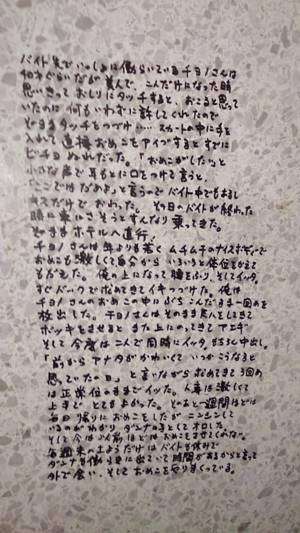 バイト先でいっしょに働らいているチヨノさんは
ぐらいだが 並んで、こんだけになった時
思いきっておしりにタッチすると、おこると思って
いたのに 何もいわずに許してくれたので
そのままタッチをつづけ… スカートの中に手と
入れて 直接おめこをアイブすると すでに
ビチョぬれだった。「おめこがしたい」と
小さな声で耳もとに口をつけて言うと、
「ここではだめよ」と言うのでバイト中でもあるし
キスだけでおわった。 その日のバイトが終わった
時に車にさそうとすんなり乗ってきた。
そのままホテルへ直行!
チヨノさんは年よりも若く ムチムチのナイスボディーで
おめこも激しくて自分からいろいろと体位をかえて
もだえた。俺の上になって腰をふり、そしてイッタ。
すぐバックで求めてきてイキつづけた。俺は
チヨノさんのおめこの中にぶちこんだまま一回めを
放出した。チヨノさんはそのまま
ボッキをさせると また上にのってきてアエギ
そして今度は二人で同時にイッタ。もちろん中出し。
「前からアナタがかわいくて いつかこうなると
思っていた日」と言いながら求めてきて3回め
は正常位のままでイッた。人妻は激しくて
上手で とてもよかった。そのあと一週間ほどは
毎日帰りにおめこをしたが ニンシンして
いるのがわかり ダンナの子としてオロした。
そして今は 前ほどはおめこをさせてくれない。
毎週末の土ようだけはバイトも休みで
ダンナも働らきに出ていて時間があるからと言って
外で会い、そしておめこをやりまくっている。